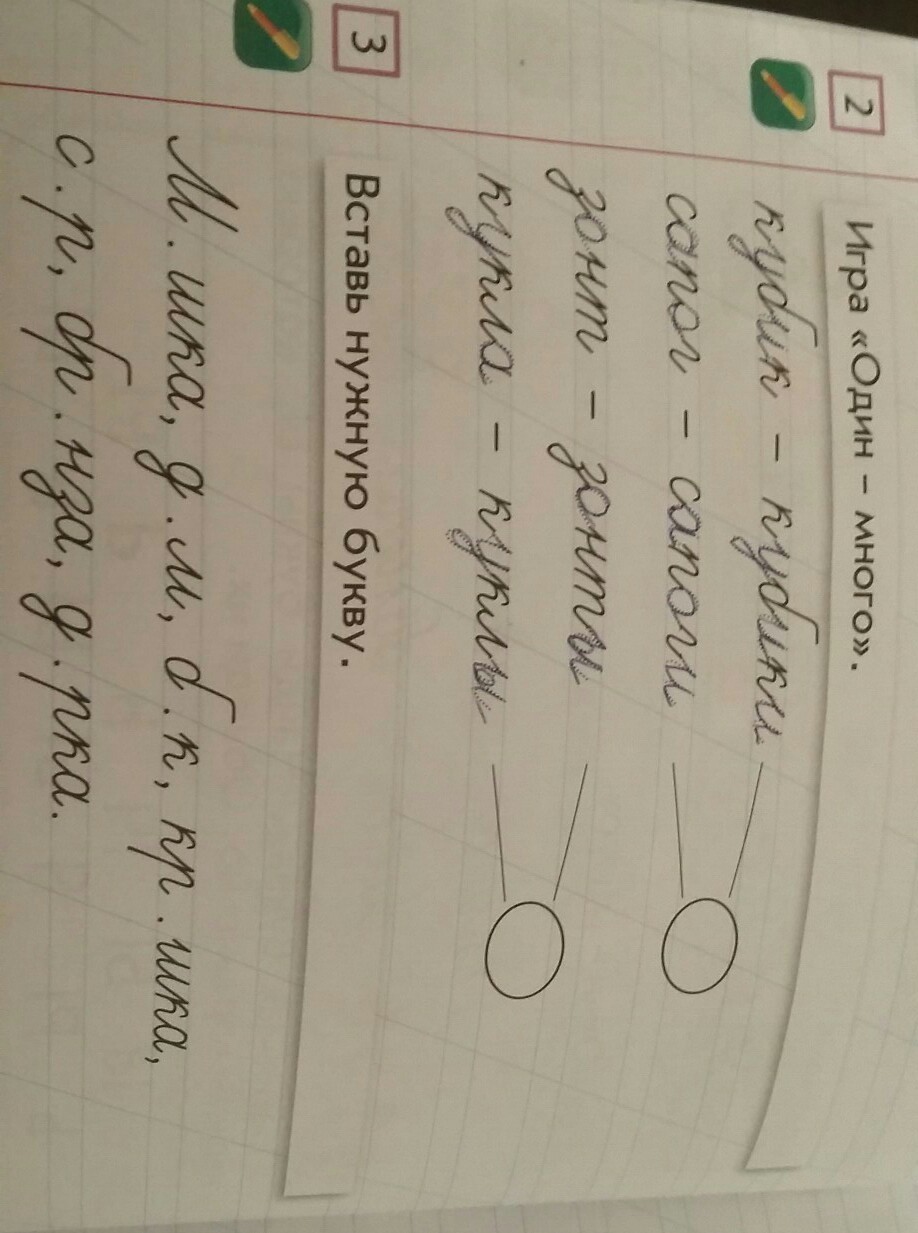 2 Игра «Один – много».
кубик – кубики
сапог – сапоги
зонт – зонты
кукла – куклы
3 Вставь нужную букву.
М.шка, д.м, б.к, кр.шка,
с.р, бр.нза, д.рка.